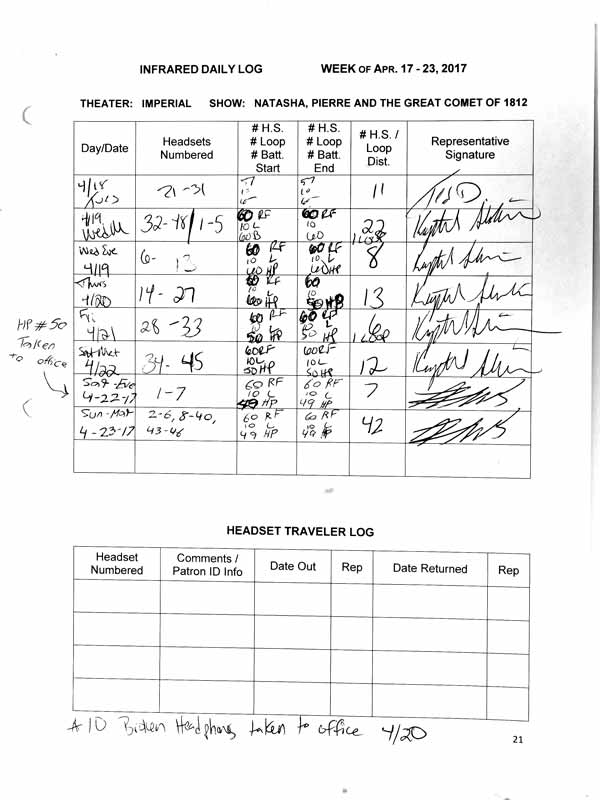 INFRARED DAILY LOG WEEK OF APR. 17 - 23, 2017
THEATER: IMPERIAL SHOW: NATASHA, PIERRE AND THE GREAT COMET OF 1812
Day/Date
Headsets
Numbered
# H.S.
# Loop
# Batt.
Start
# H.S.
# Loop
# Batt.
End
# H.S. /
Loop
Dist.
Representative
Signature
4/18
Tues
21-31
11
Ted D
4/19
Wed M
32-48/1-5
60 RF
10 L
60 B
60 RF
10
60
22
1 Loop
Wed Eve
4/19
6-13
60 RF
10 L
60 HP
60 RF
10 L
60 HP
8
Thurs
4/20
14-27
60 RF
10 L
60 HP
60
10
50 HP
13
Fri
4/21
28-33
60 RF
10 L
50 HP
60 RF
10 L
50 HP
6
1 Loop
Sat Mat
4/22
34-45
60 RF
10 L
50 HP
60 RF
10 L
50 HP
12
HP #50
Taken
to office
Sat-Eve
4-22-17
1-7
60 RF
10 L
49 HP
60 RF
10 L
49 HP
7
Sun-Mat
4-23-17
2-6, 8-40,
43-46
60 RF
10 L
49 HP
60 RF
10 L
49 HP
42
HEADSET TRAVELER LOG
Headset
Numbered
Comments /
Patron ID Info
Date Out
Rep
Date Returned
Rep
10 Broken Headphones taken to office 4/20
21